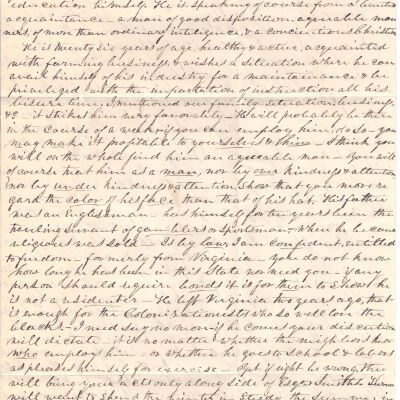 education himself. He is speaking of course from a limited
acquaintance - a man of good disposition, agreeable man
ners, of more than ordinary inteligence, & a concientious christian
He is twenty six years of age, healthy & active, acquainted
with farming business, & wishes a situation where he can
avail himself of his industry for a maintainance & be
privileged with the importation of instruction all his
leisure time. I mentioned our family situation, business,
&c - it strikes him very favorably - He will probably be there
in the course of a week if you can employ him, do so - you
may make it profitable to yourselves & him - I think you
will on the whole find him an agreeable man - you will
of course treat him as a man, nor by over kindness & attention
nor by under kindness & attention, show that you more re
gard the color of his face than that of his hat. His father
was an Englishman - has himself for ten years been the
traveling servant of gamblers or Sportsman - When he became
religious was sold - Is by law, I am confident, entitled
to freedom - formerly from Virginia - you do not know
how long he has been in this State nor need you - if any
person should require bonds it is for them to show he
is not a residenter - He left Virginia two years ago, that
is enough for the Colonizationests who so well love the
blacks - I need say no more if he comes your discretion
will dictate it is no matter whether the neighbors know
who employs him - or whether he goes to School & labors
as pleases himself for exercise - Yet if ought be wrong, they
will bring your acts only along side of Esqr Smith's
will want to spend the winter in Study the Summer, in